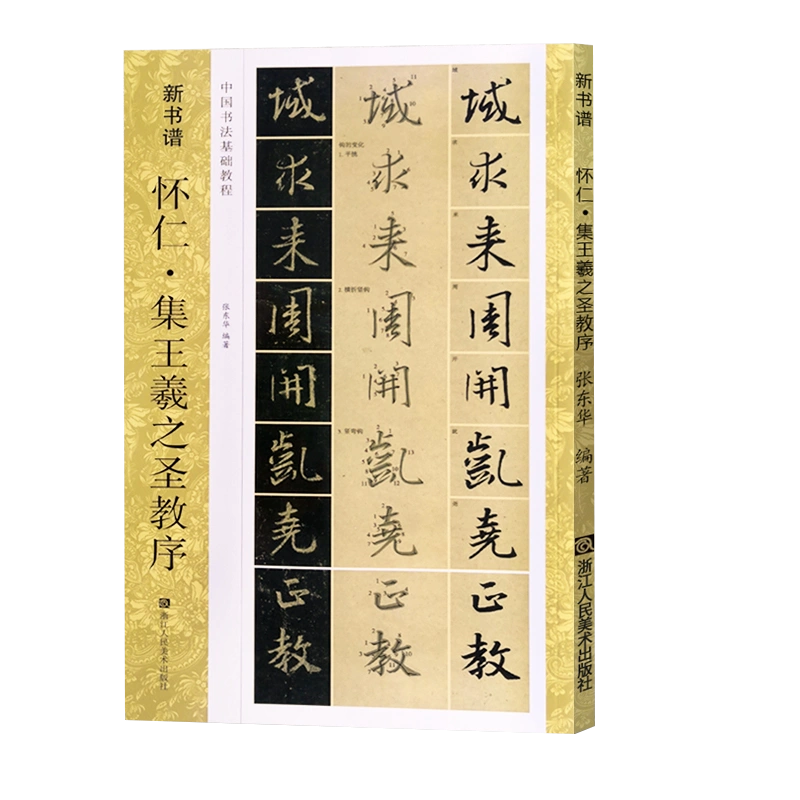 新书谱
怀仁·集王羲之圣教序
浙江人民美术出版社
中国书法基础教程
张东华 编著
域 域 域
求 求 求
来 来 来
周 周 周
開 開 開
凱 凱 凱
堯 堯 堯
正 正 正
教 教 教
2. 横折竖钩
3. 竖弯钩
新书谱
怀仁·集王羲之圣教序
张东华 编著
浙江人民美术出版社